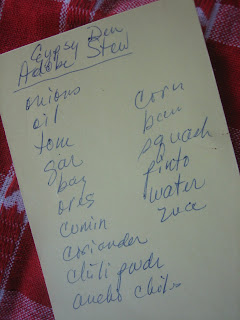 Gypsy Den
Adobe Stew
onions
oil
tom
gar
bay
oreg
cumin
coriander
chili powdr
ancho chile
corn
squash
pinto
water
zucc